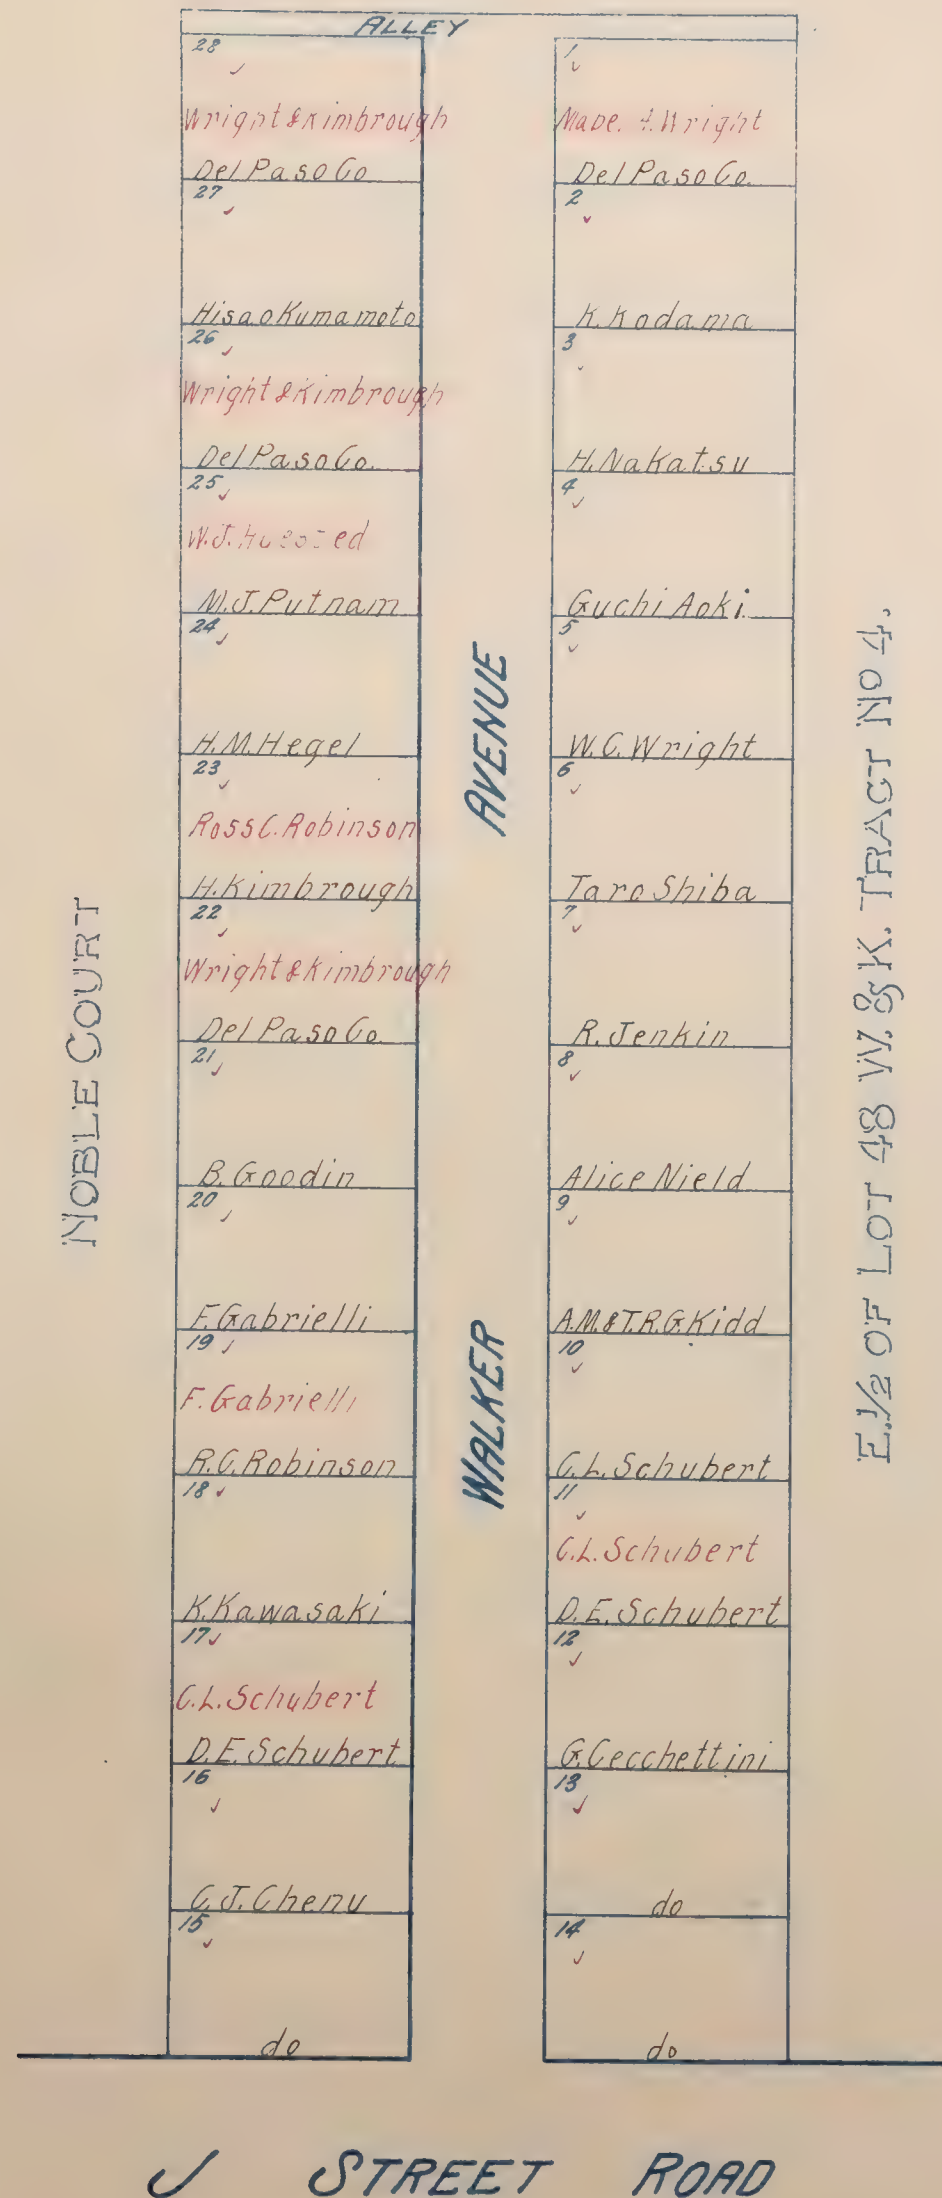 ALLEY
28
Wright & Kimbrough
Del Paso Co.
27
Hisao Kumamoto
26
Wright & Kimbrough
Del Paso Co.
25
W.J.
M.J. Putnam
24
H.M. Hegel
23
Ross C. Robinson
H. Kimbrough
22
Wright & Kimbrough
Del Paso Co.
21
B. Goodin
20
F. Gabrielli
19
F. Gabrielli
R.C. Robinson
18
K. Kawasaki
17
C.L. Schubert
D.E. Schubert
16
C.J. Chenu
15
do
1
Wright
Del Paso Co.
2
K. Kodama
3
H. Nakatsu
4
Guchi Aoki
5
W.C. Wright
6
Taro Shiba
7
R. Jenkin
8
Alice Nield
9
A.M. & T.R.G. Kidd
10
C.L. Schubert
11
C.L. Schubert
D.E. Schubert
12
G. Cecchettini
13
do
14
do
NOBLE COURT
WALKER AVENUE
E. 1/2 OF LOT 48 W. & K. TRACT NO 4.
J STREET ROAD